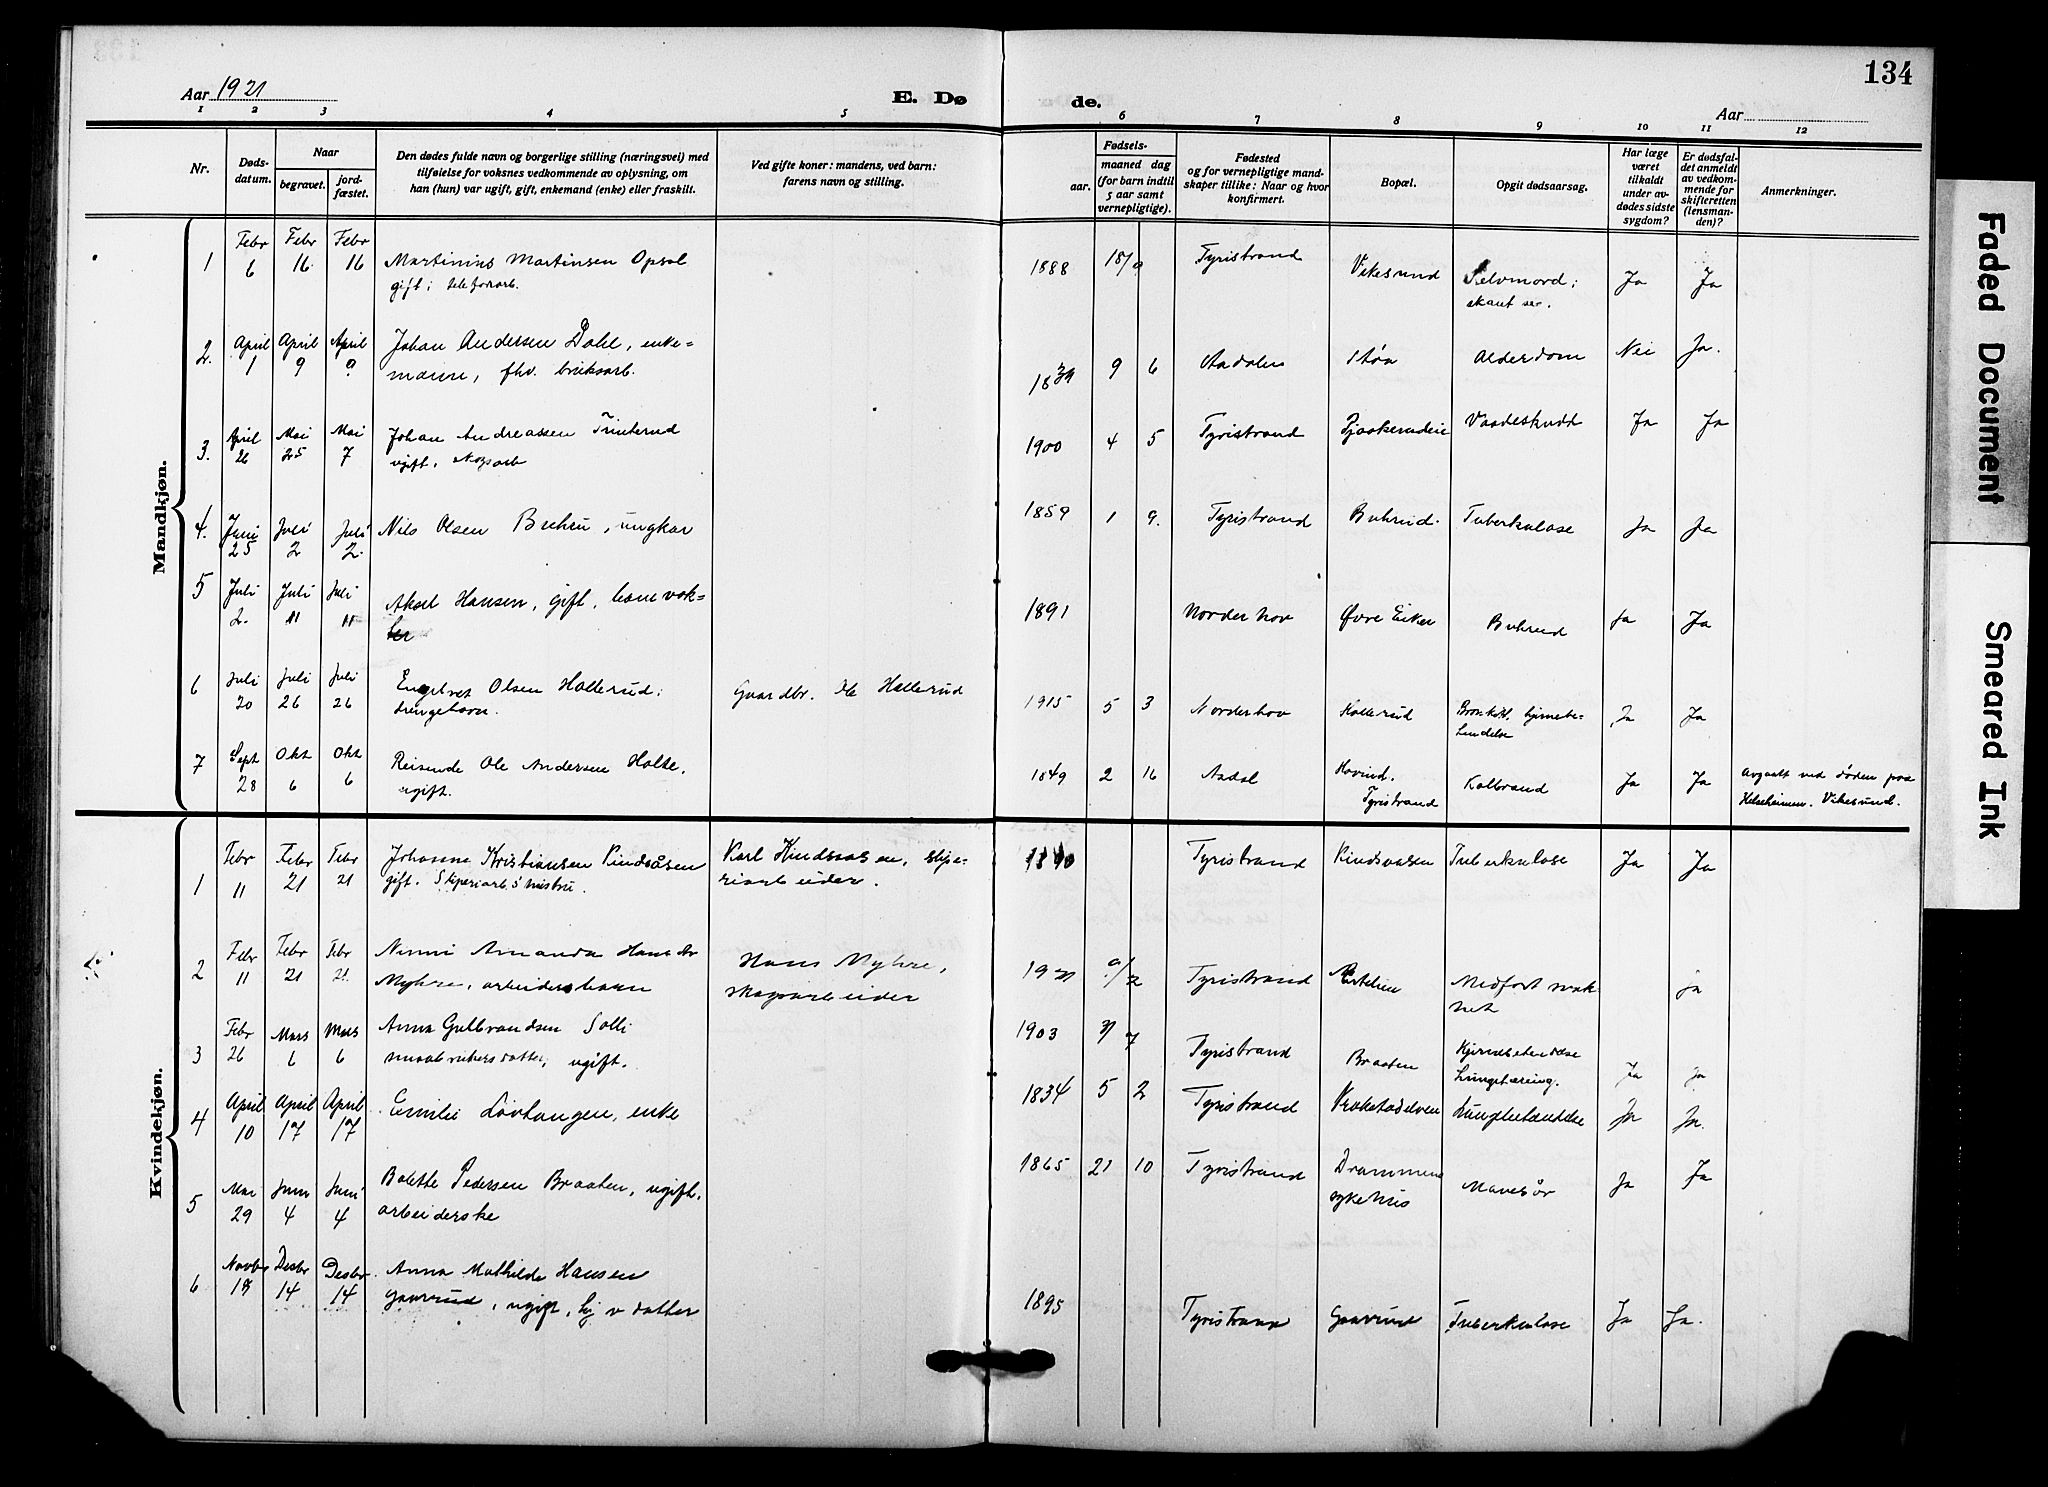 134
Aar 1921
E. Dø
de.
Aar
1 2 3 4 5 6 7 8 9 10 11 12
Nr.
Døds-
datum.
Naar
begravet.
jord-
fæstet.
Den dødes fulde navn og borgerlige stilling (næringsvei) med
tilføielse for voksnes vedkommende av oplysning, om
han (hun) var ugift, gift, enkemand (enke) eller fraskilt.
Ved gifte koner: mandens, ved barn:
farens navn og stilling.
Fødsels-
aar.
maaned dag
(for barn indtil
5 aar samt
vernepligtige).
Fødested
og for vernepligtige mand-
skaper tillike: Naar og hvor
konfirmert.
Bopæl.
Opgit dødsaarsag.
Har læge
været
tilkaldt
under av-
dødes sidste
sygdom?
Er dødsfal-
det anmeldt
av vedkom-
mende for
skifteretten
(lensman-
den)?
Anmerkninger.
Mandkjøn.
1 Febr 6 Febr 16 Febr 16 Martinius Martinsen Opsal 1888 18/9 Tyristrand Vikesund Selvmord; Ja Ja
gift; telefonarb. skaut ser.
2. April 1 April 9 April 9 Johan Andersen Dahl, enke= 9 6 Aadalen Støa Alderdom Nei Ja.
mann, fhv. bruksarb.
3. April 26 Mai 25 Mai 7 Johan Andreassen Trinterud 1900 4 5 Tyristrand Vaadeskudd Ja Ja
ugift, skogsarb
4. Juni 25 Juli 2 Juli 2. Nils Olsen Buhru, ungkar 1859 1 9. Tyristrand Buhrud. Tuberkulose Ja Ja
5 Juli 2. Juli 11 Juli 11 Aksel Hansen, gift, banevok= 1891 Norderhov Øvre Eiker Buhrud Ja Ja
ter
6 Juli 20 Juli 26 Juli 26 Engelvet Olsen Hollerud; Gaardbr. Ole Hollerud 1915 5 3 Norderhov Hollerud hjernebe= Ja Ja
drengebarn. tendelse
7 Sept 28 Okt 6 Okt 6 Reisende Ole Andersen Holte, 1849 2 16 Aadal Hovind. Koldbrand Ja Ja Avgaatt ved døden paa
ugift. Tyristrand Helseheimen. Vikesund.
Kvindekjøn.
1 Febr 11 Febr 21 Febr 21 Johanne Kristiansen Kindsåsen Karl Kindsaasen, slipe- Tyristrand Kindsaasen Tuberkulose Ja Ja
gift. Sliperiarb.s hustru. riarbeider.
2 Febr 11 Febr 21 Febr 21. Ninni Amanda Hansdtr Hans Myhre, 1921 9/2 Tyristrand Medført svak- ja
Myhre, arbeidersbarn skogsarbeider het
3 Febr 26 Mars 6 Mars 6 Anna Gulbrandsen Solli 1903 7 Tyristrand Braaten Hjernebetendelse Ja ja
smaabrukers datter, ugift. Lungetæring.
4 April 10 April 17 April 17 Emilie Løvhaugen, enke 1834 5 2 Tyristrand Vrakstadelven Lungebetændelse Ja Ja.
5 Mai 29 Juni 4 Juni 4 Bolette Pedersen Braaten, ugift, 1865 21 10 Tyristrand Drammens Mavesår Ja Ja
arbeiderske sykehus
6 Novbr 18 Desbr 14 Desbr 14 Anna Mathilde Hansen 1895 Tyristrand Gaarud Tuberkulose Ja Ja.
Gaarud, ugift, datter
Faded Document
Smeared Ink